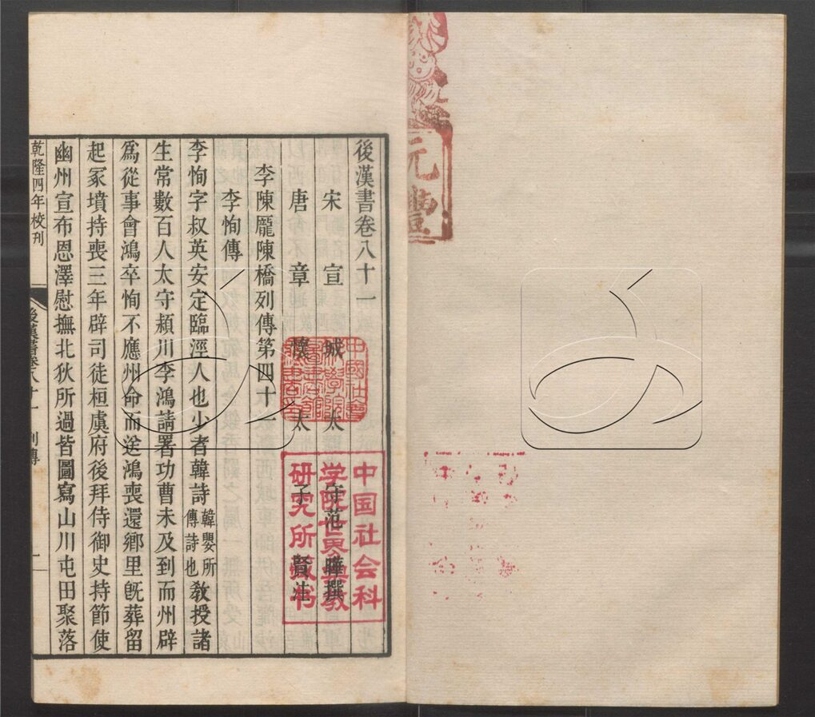 元豐
後漢書卷八十一
宋宣城太守范曄撰
唐章懷太子賢注
李陳龐陳橋列傳第四十一
李恂傳
李恂字叔英安定臨涇人也少者韓詩韓嬰所傳詩也教授諸
生常數百人太守潁川李鴻請署功曹未及到而州辟
為從事會鴻卒恂不應州命而送鴻喪還鄉里既葬留
起冢墳持喪三年辟司徒桓虞府後拜侍御史持節使
幽州宣布恩澤慰撫北狄所過皆圖寫山川屯田聚落
乾隆四年校刊
後漢書卷八十一 列傳
一
中国社会科
学院世界宗教
研究所藏书